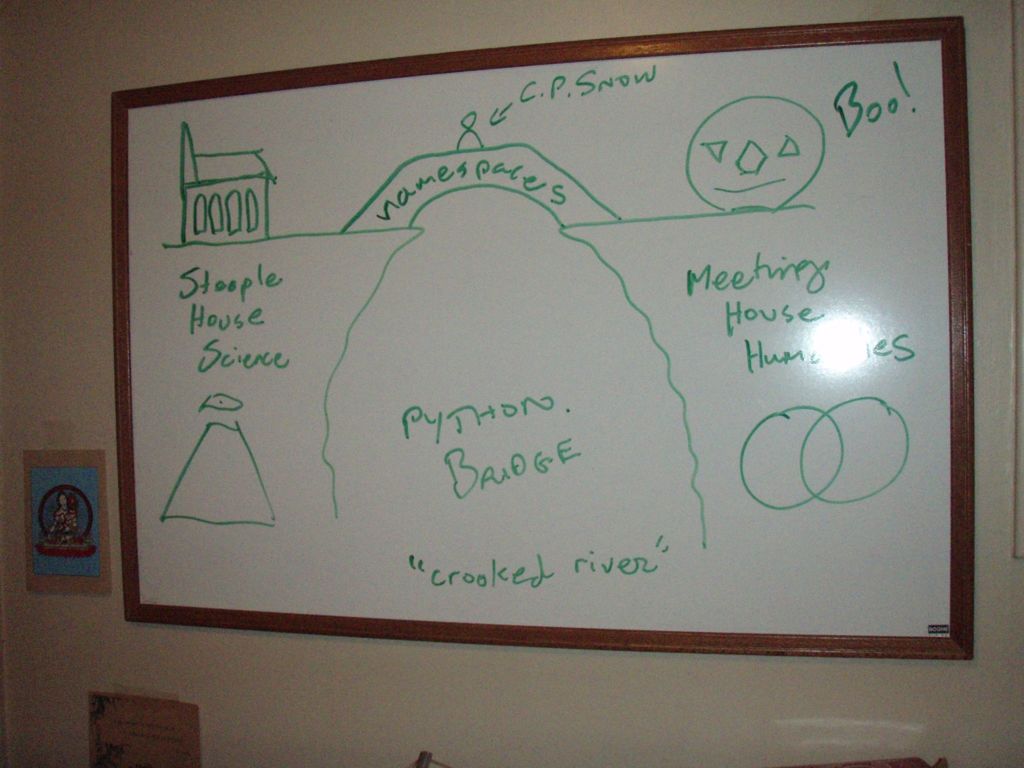 C.P. SNOW
Boo!
namespaces
Steeple
House
Science
Meeting
House
PYTHON.
BRIDGE
"crooked river"